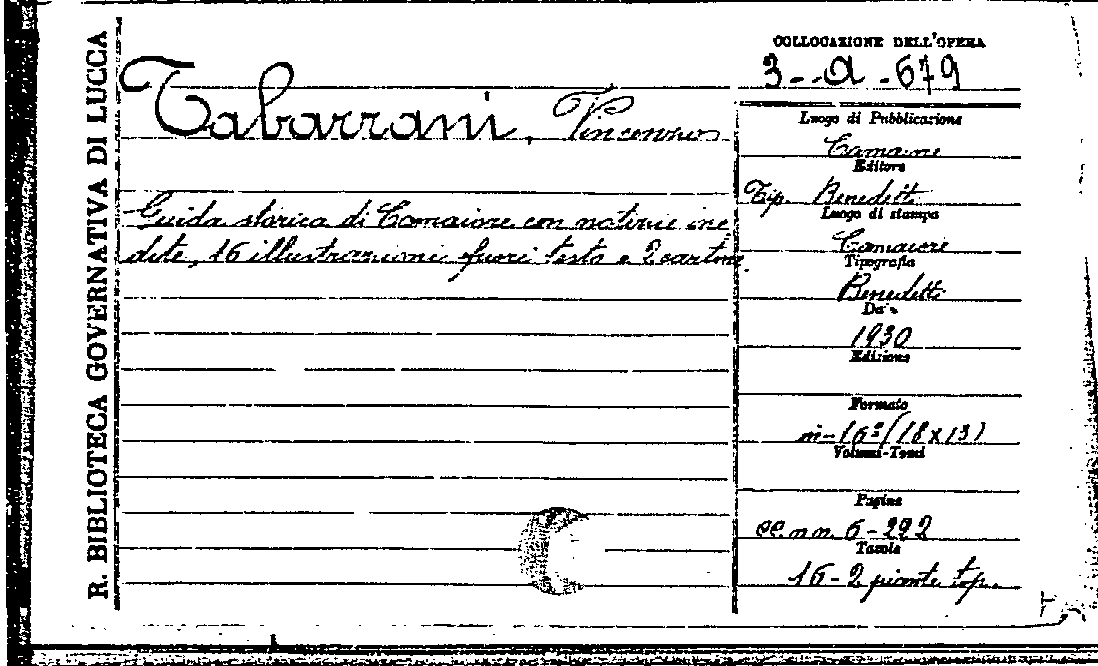 R. BIBLIOTECA GOVERNATIVA DI LUCCA
Tabarrani, Vincenzo
Guida storica di Camaiore con notizie ine
dite, 16 illustrazioni fuori testo e 2 cartine.
COLLOCAZIONE DELL'OPERA
3--a-679
Luogo di Pubblicazione
Camaiore
Editore
Tip. Benedetti
Luogo di stampa
Camaiore
Tipografia
Benedetti
Data
1930
Edizione
Formato
in-16º (18x13)
Volumi-Tomi
Pagine
cc. nn. 6-292
Tavole
16-2 piante top.